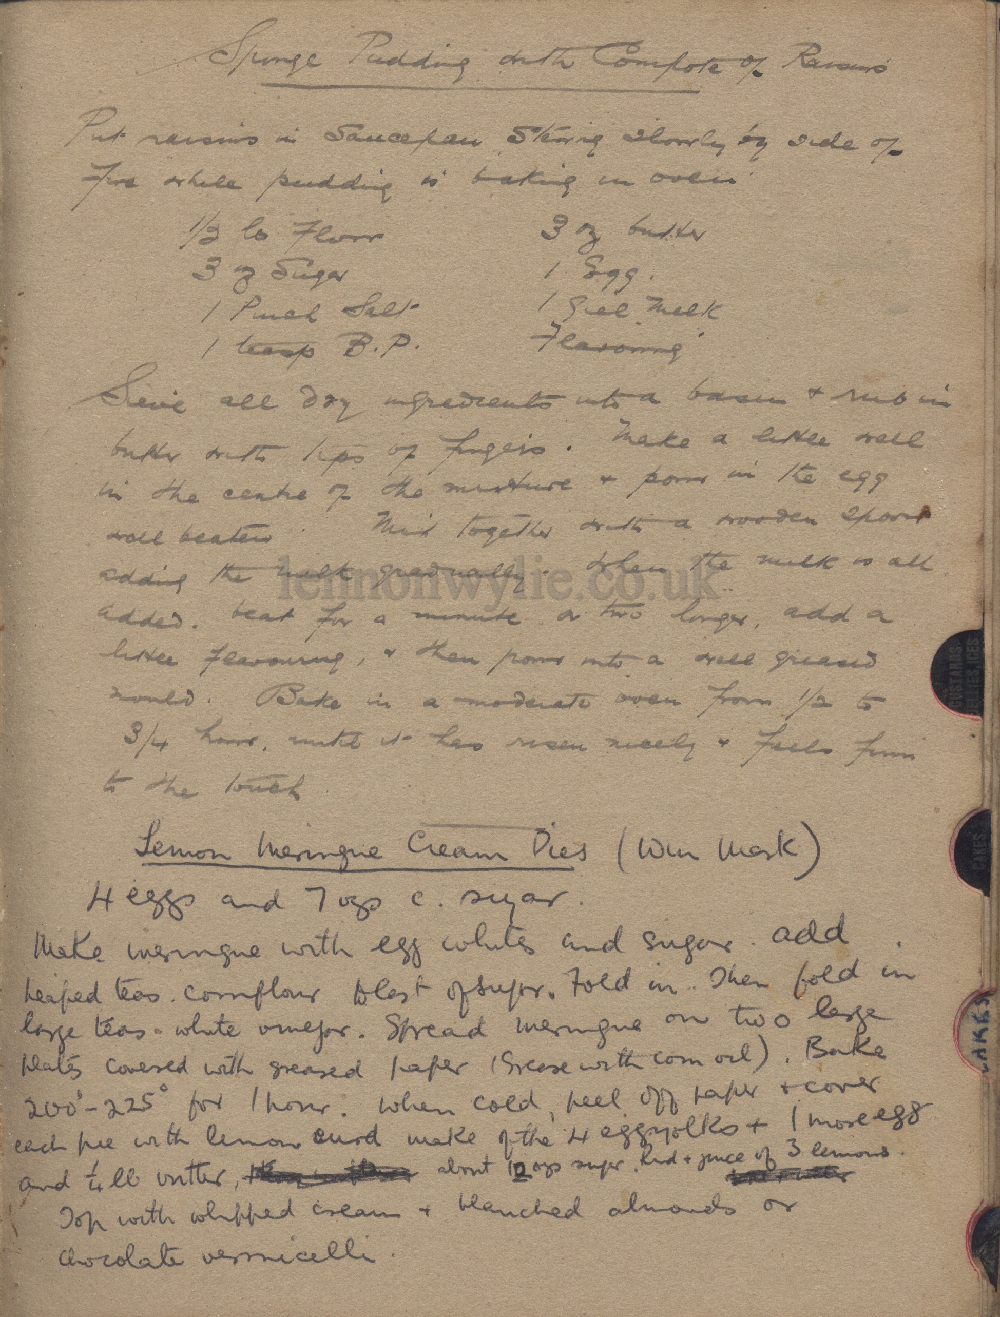 Sponge Pudding with Compote of Raisins
Put raisins in Saucepan, Stewing slowly by side of
fire while pudding is baking in oven
1/2 lb Flour 3 oz butter
3 oz Sugar 1 Egg.
1 Pinch Salt 1 Gill Milk
1 teasp B.P. Flavouring
Sieve all dry ingredients into a basin + rub in
butter with tips of fingers. Make a little well
in the centre of the mixture + pour in the egg
well beaten. Mix together with a wooden spoon
adding the milk gradually. When the milk is all
added. beat for a minute or two longer, add a
little flavouring, + then pour into a well greased
mould. Bake in a moderate oven from 1/2 to
3/4 hour, until it has risen nicely + feels firm
to the touch
lennonwylie.co.uk
Lemon Meringue Cream Pies (Win Mark)
4 eggs and 7 ozs c. sugar.
Make meringue with egg whites and sugar. add
heaped teas. cornflour to last of sugar. Fold in. Then fold in
large teas. white vinegar. Spread meringue on two large
plates covered with greased paper (Grease with corn oil). Bake
200°-225° for 1 hour. When cold, peel off paper + cover
each pie with lemon curd make of the 4 egg yolks + 1 more egg
and 1/4 lb butter, about 12 ozs sugar. Rind + juice of 3 lemons.
Top with whipped cream + blanched almonds or
chocolate vermicelli.
CUSTARDS
JELLIES, ICES
CAKES
CAKES